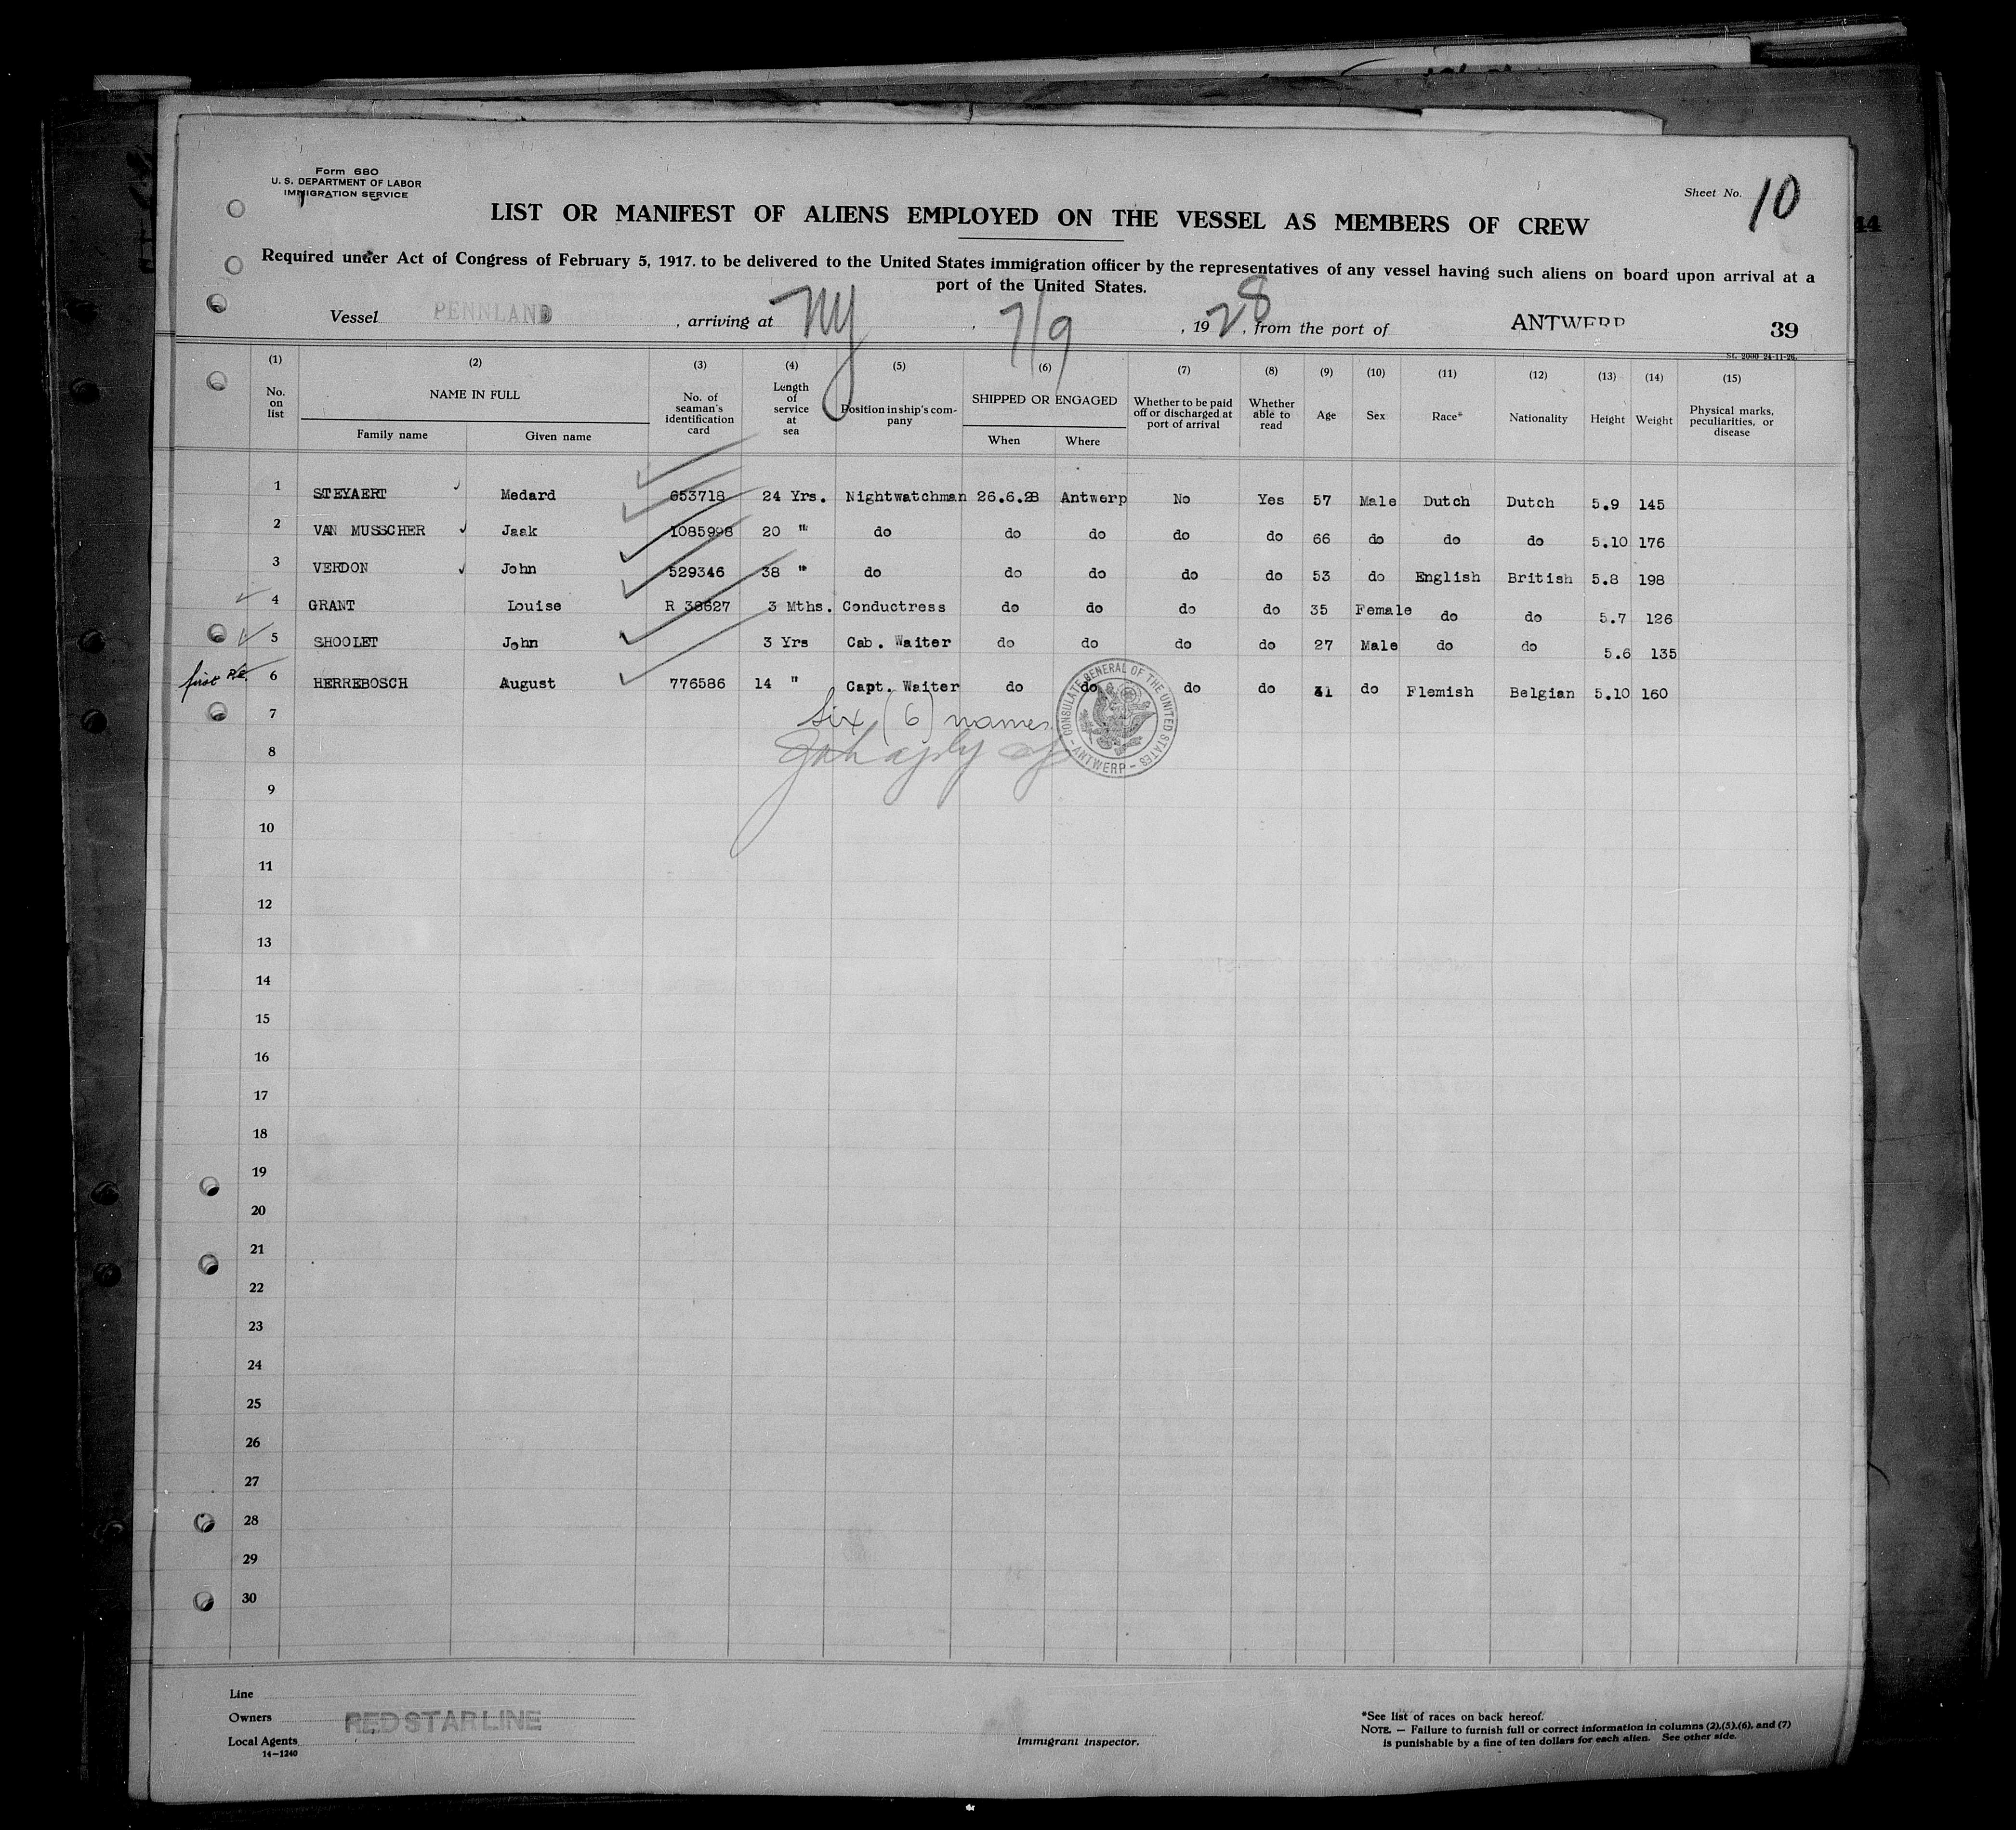 Form 680
U. S. DEPARTMENT OF LABOR
IMMIGRATION SERVICE
Sheet No. 10
LIST OR MANIFEST OF ALIENS EMPLOYED ON THE VESSEL AS MEMBERS OF CREW
44
Required under Act of Congress of February 5, 1917. to be delivered to the United States immigration officer by the representatives of any vessel having such aliens on board upon arrival at a
port of the United States.
Vessel PENNLAND , arriving at NY , 7/9 , 1928, from the port of ANTWERP 39
SL. 2000 24-11-26.
(1) (2) (3) (4) (5) (6) (7) (8) (9) (10) (11) (12) (13) (14) (15)
No. on list NAME IN FULL Family name Given name No. of seaman's identification card Length of service at sea Position in ship's company SHIPPED OR ENGAGED When Where Whether to be paid off or discharged at port of arrival Whether able to read Age Sex Race* Nationality Height Weight Physical marks, peculiarities, or disease
1 STEYAERT Medard 653718 24 Yrs. Nightwatchman 26.6.28 Antwerp No Yes 57 Male Dutch Dutch 5.9 145
2 VAN MUSSCHER Jaak 1085998 20 " do do do do do 66 do do do 5.10 176
3 VERDON John 529346 38 " do do do do do 53 do English British 5.8 198
4 GRANT Louise R 38627 3 Mths. Conductress do do do do 35 Female do do 5.7 126
5 SHOOLET John 3 Yrs Cab. Waiter do do do do 27 Male do do 5.6 135
first 6 HERREBOSCH August 776586 14 " Capt. Waiter do do do do 41 do Flemish Belgian 5.10 160
7 six (6) names
CONSULATE GENERAL OF THE UNITED STATES - ANTWERP -
8
9
10
11
12
13
14
15
16
17
18
19
20
21
22
23
24
25
26
27
28
29
30
Line
Owners RED STAR LINE
Local Agents
14-1240
Immigrant Inspector.
*See list of races on back hereof.
NOTE. — Failure to furnish full or correct information in columns (2),(5),(6), and (7)
is punishable by a fine of ten dollars for each alien. See other side.